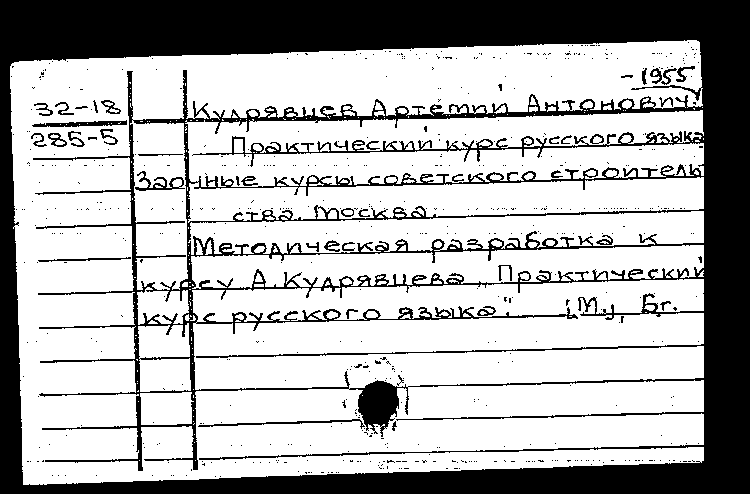 -1955
32-18 Кудрявцев, Артемий Антонович.
285-5 Практический курс русского языка
Заочные курсы советского строитель
ства. Москва.
Методическая разработка к
курсу А. Кудрявцева „Практический
курс русского языка". [М.], Б.г.